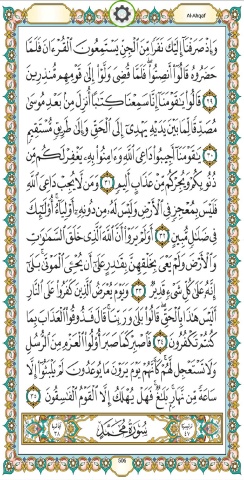 Al-Ahqaf
وَإِذْ صَرَفْنَآ إِلَيْكَ نَفَرًا مِّنَ ٱلْجِنِّ يَسْتَمِعُونَ ٱلْقُرْءَانَ فَلَمَّا
حَضَرُوهُ قَالُوٓا۟ أَنصِتُوا۟ ۖ فَلَمَّا قُضِىَ وَلَّوْا۟ إِلَىٰ قَوْمِهِم مُّنذِرِينَ
٢٩ قَالُوا۟ يَٰقَوْمَنَآ إِنَّا سَمِعْنَا كِتَٰبًا أُنزِلَ مِنۢ بَعْدِ مُوسَىٰ
مُصَدِّقًا لِّمَا بَيْنَ يَدَيْهِ يَهْدِىٓ إِلَى ٱلْحَقِّ وَإِلَىٰ طَرِيقٍ مُّسْتَقِيمٍ
٣٠ يَٰقَوْمَنَآ أَجِيبُوا۟ دَاعِىَ ٱللَّهِ وَءَامِنُوا۟ بِهِۦ يَغْفِرْ لَكُم مِّن
ذُنُوبِكُمْ وَيُجِرْكُم مِّنْ عَذَابٍ أَلِيمٍ ٣١ وَمَن لَّا يُجِبْ دَاعِىَ ٱللَّهِ
فَلَيْسَ بِمُعْجِزٍ فِى ٱلْأَرْضِ وَلَيْسَ لَهُۥ مِن دُونِهِۦٓ أَوْلِيَآءُ ۚ أُو۟لَٰٓئِكَ
فِى ضَلَٰلٍ مُّبِينٍ ٣٢ أَوَلَمْ يَرَوْا۟ أَنَّ ٱللَّهَ ٱلَّذِى خَلَقَ ٱلسَّمَٰوَٰتِ
وَٱلْأَرْضَ وَلَمْ يَعْىَ بِخَلْقِهِنَّ بِقَٰدِرٍ عَلَىٰٓ أَن يُحْۦِىَ ٱلْمَوْتَىٰ ۚ بَلَىٰٓ
إِنَّهُۥ عَلَىٰ كُلِّ شَىْءٍ قَدِيرٌ ٣٣ وَيَوْمَ يُعْرَضُ ٱلَّذِينَ كَفَرُوا۟ عَلَى ٱلنَّارِ
أَلَيْسَ هَٰذَا بِٱلْحَقِّ ۖ قَالُوا۟ بَلَىٰ وَرَبِّنَا ۚ قَالَ فَذُوقُوا۟ ٱلْعَذَابَ بِمَا
كُنتُمْ تَكْفُرُونَ ٣٤ فَٱصْبِرْ كَمَا صَبَرَ أُو۟لُوا۟ ٱلْعَزْمِ مِنَ ٱلرُّسُلِ
وَلَا تَسْتَعْجِل لَّهُمْ ۚ كَأَنَّهُمْ يَوْمَ يَرَوْنَ مَا يُوعَدُونَ لَمْ يَلْبَثُوٓا۟ إِلَّا
سَاعَةً مِّن نَّهَارٍۭ ۚ بَلَٰغٌ ۚ فَهَلْ يُهْلَكُ إِلَّا ٱلْقَوْمُ ٱلْفَٰسِقُونَ ٣٥
سُورَةُ مُحَمَّدٍ
506